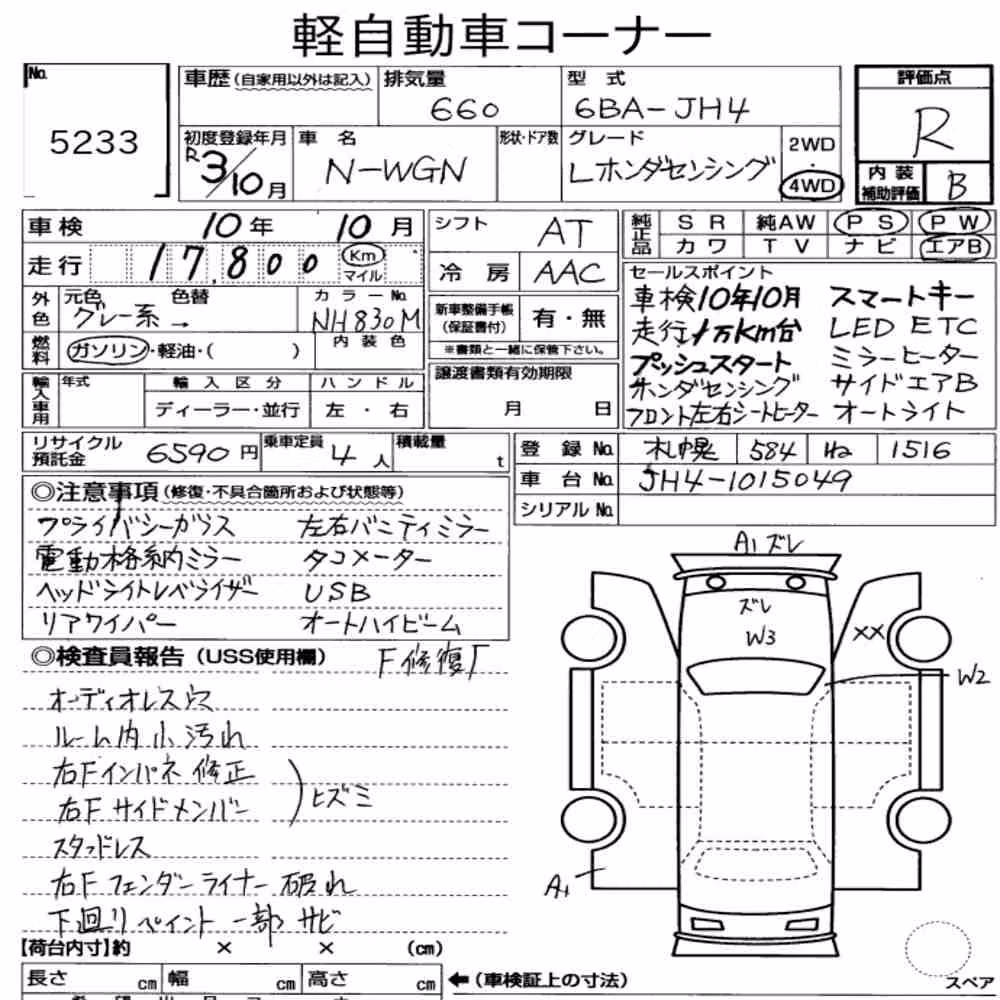 軽自動車コーナー
No. 5233
車歴(自家用以外は記入) 排気量 660 型式 6BA-JH4 評価点 R
初度登録年月 R3/10月 車名 N-WGN 形状・ドア数 グレード Lホンダセンシング 2WD・4WD 内装補助評価 B
車検 10年 10月
走行 17,800 Km マイル
シフト AT
冷房 AAC
純正品 SR 純AW PS PW
カワ TV ナビ エアB
外色 元色 グレー系 色替 → カラーNo. NH830M
燃料 ガソリン・軽油・( ) 内装色
新車整備手帳(保証書付) 有・無
※書類と一緒に保管下さい。
譲渡書類有効期限
月 日
輸入車用 年式 輸入区分 ハンドル
ディーラー・並行 左・右
セールスポイント
車検10年10月 スマートキー
走行1万Km台 LED ETC
プッシュスタート ミラーヒーター
ホンダセンシング サイドエアB
フロント左右シートヒーター オートライト
リサイクル預託金 6590円 乗車定員 4人 積載量 t
登録No. 札幌 584 1516
車台No. JH4-1015049
シリアルNo.
◎注意事項(修復・不具合箇所および状態等)
プライバシーガラス 左右バニティミラー
電動格納ミラー タコメーター
ヘッドライトレベライザー USB
リアワイパー オートハイビーム
◎検査員報告(USS使用欄) F修復
オーディオレス穴
ルーム内小汚れ
右Fインパネ修正
右Fサイドメンバー ) ヒズミ
スタッドレス
右Fフェンダーライナー破れ
下廻りペイント一部サビ
A1ズレ
ズレ
W3
XX
W2
A1
【荷台内寸】約 × × (cm)
長さ cm 幅 cm 高さ cm ←(車検証上の寸法)
スペア